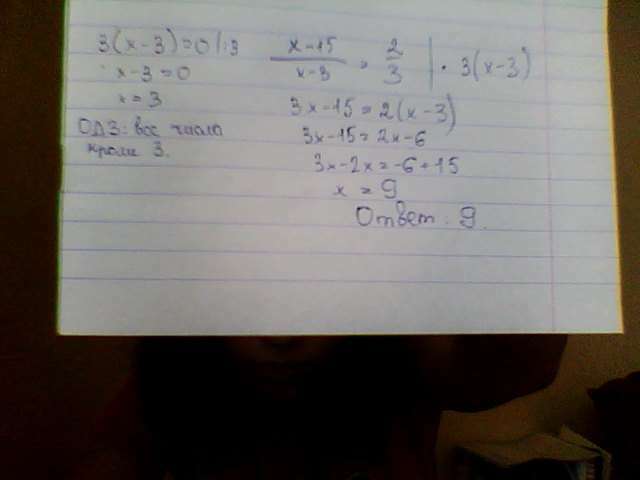 3(x-3)=0 |:3
x-3=0
x=3
ОДЗ: все числа
кроме 3.
x-15/x-3 = 2/3 | · 3(x-3)
3x-15=2(x-3)
3x-15=2x-6
3x-2x=-6+15
x = 9
Ответ: 9.